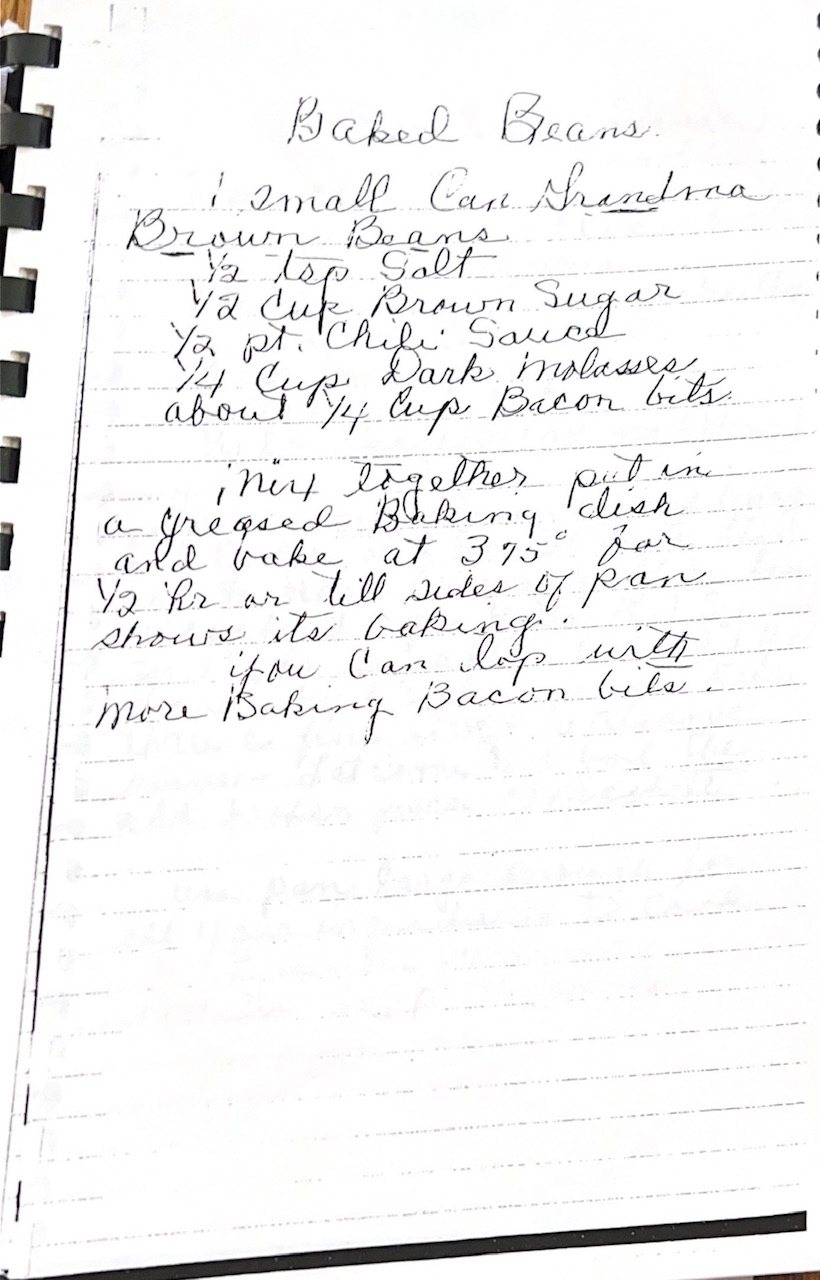 Baked Beans.
1 small Can Grandma
Brown Beans
1/2 tsp Salt
1/2 Cup Brown Sugar
1/2 pt. Chili Sauce
1/4 Cup Dark Molasses
about 1/4 Cup Bacon bits.
Mix together put in
a greased Baking dish
and bake at 375° for
1/2 hr or till sides of pan
shows its baking.
you Can top with
more Baking Bacon bits.